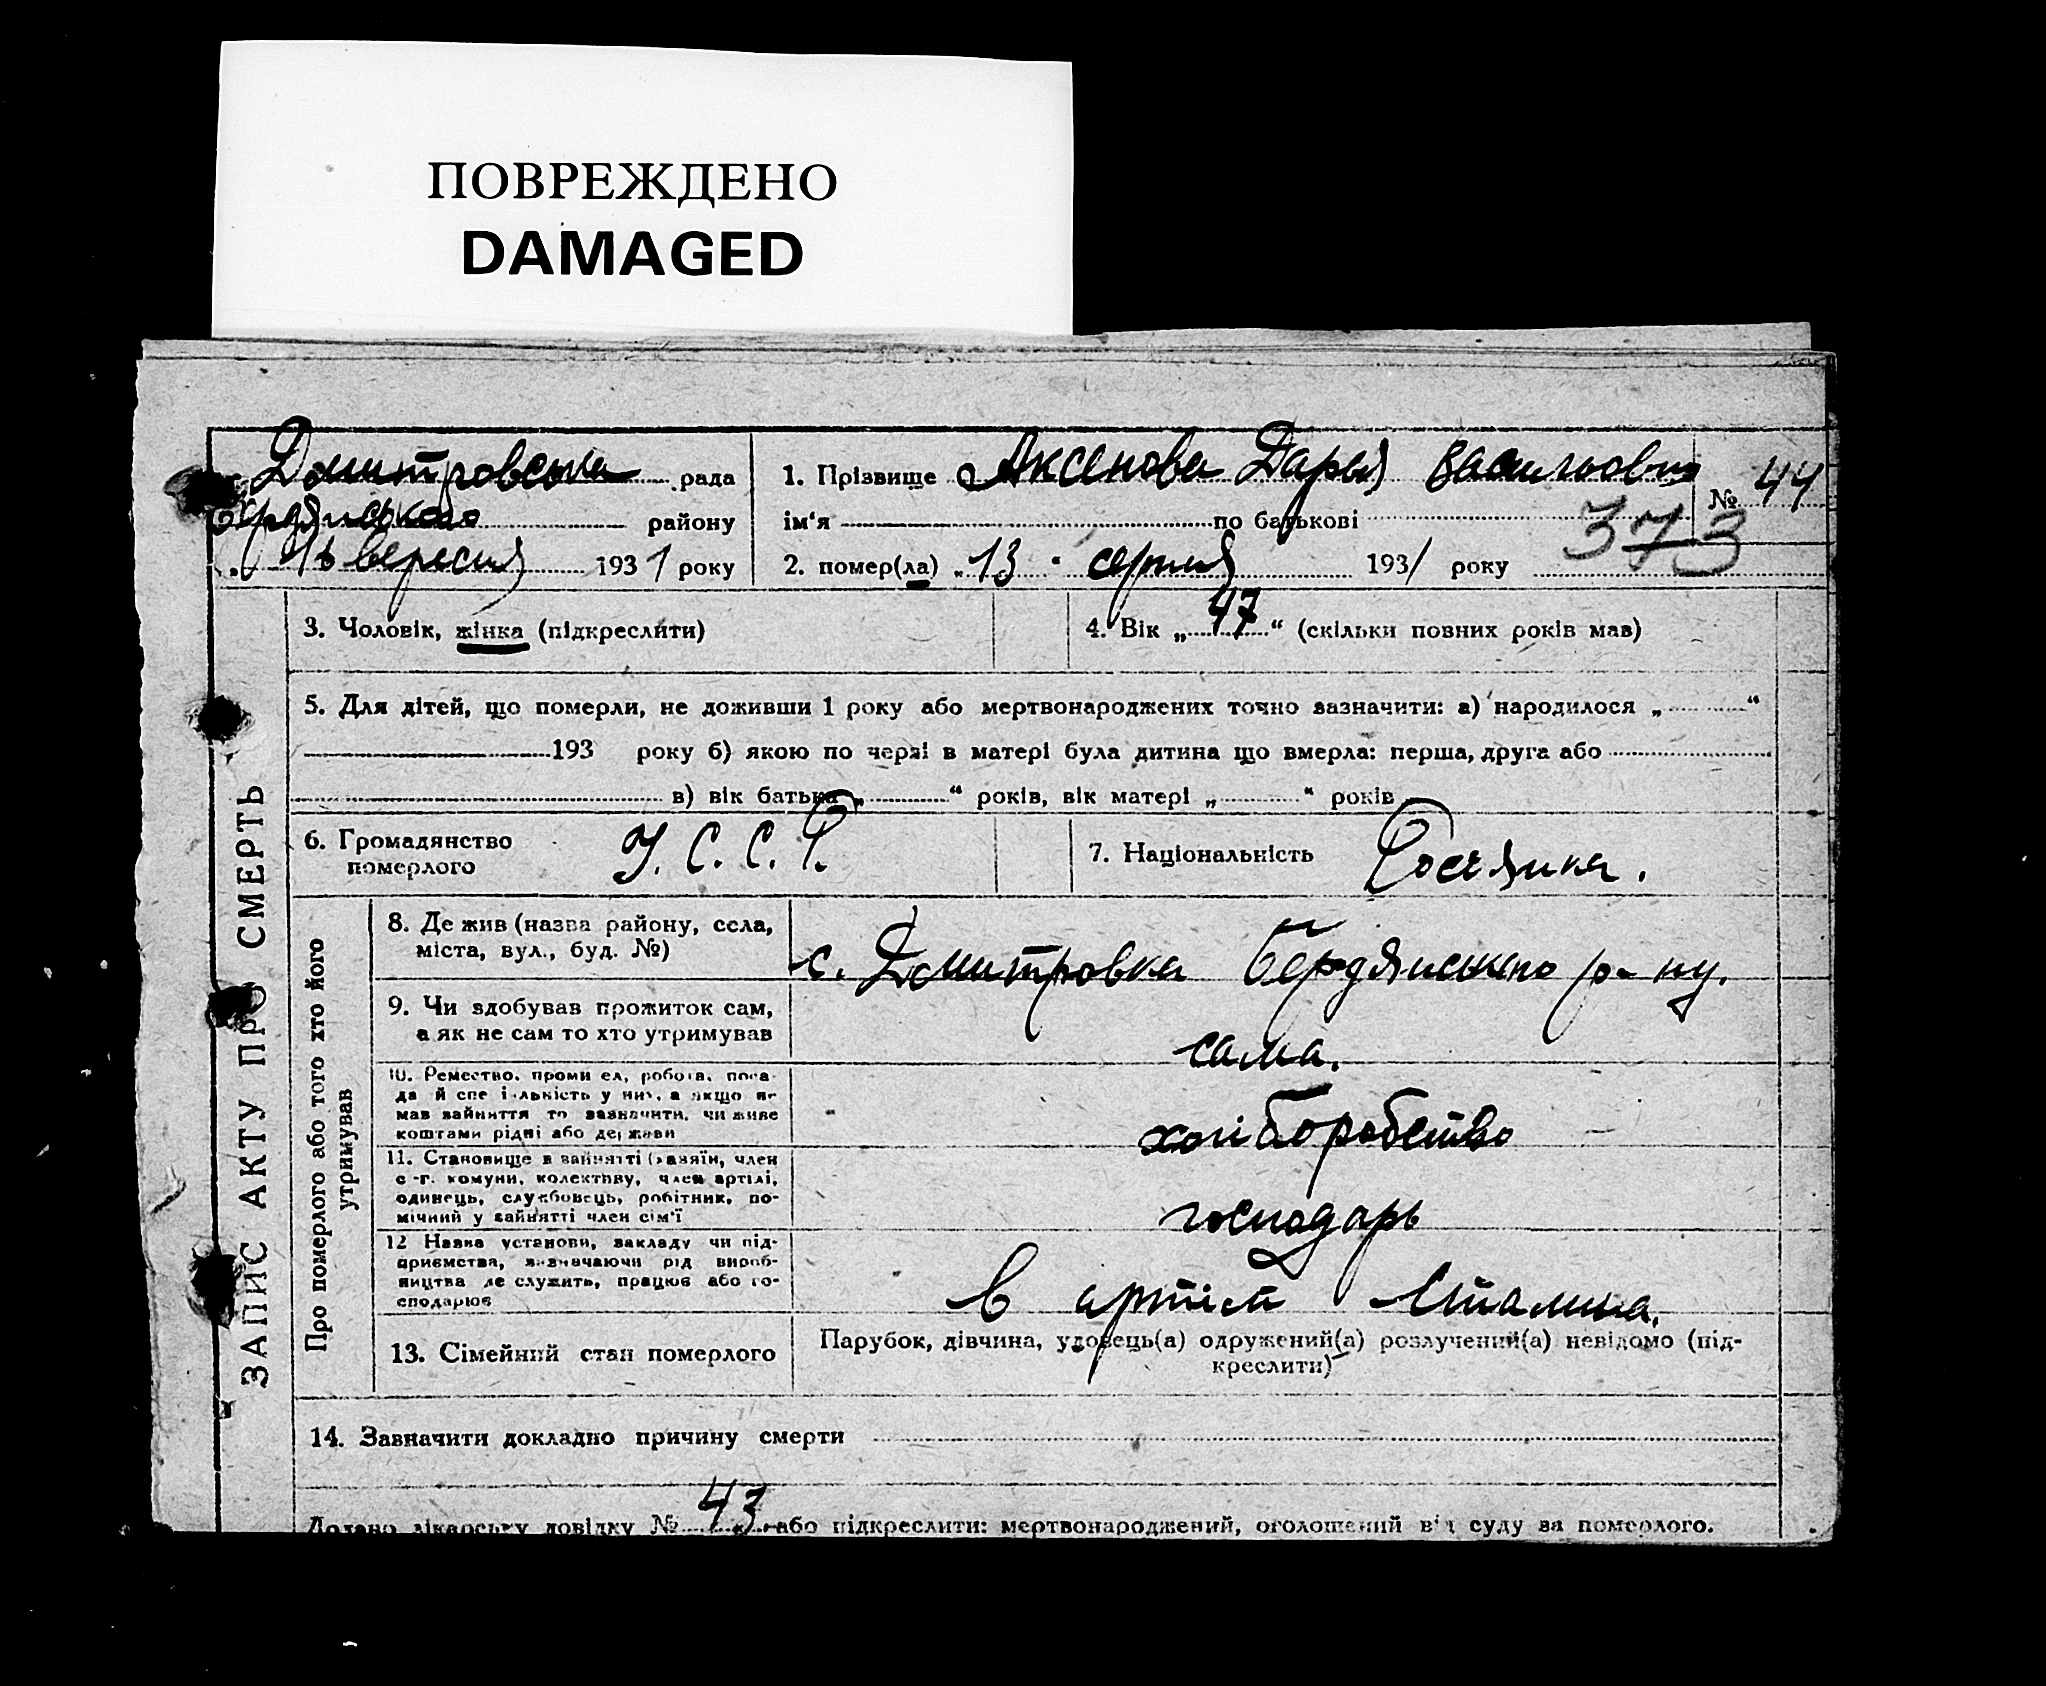 ПОВРЕЖДЕНО
DAMAGED
Дмитровська рада
Бердянського району
1. Прізвище Аксенова Дарья
№ 44
ім'я по батькові
373
вересня 1931 року
2. помер(ла) „13" серпня 1931 року
ЗАПИС АКТУ ПРО СМЕРТЬ
3. Чоловік, жінка (підкреслити)
4. Вік „47" (скільки повних років мав)
5. Для дітей, що померли, не доживши 1 року або мертвонароджених точно зазначити: а) народилося „ "
193 року б) якою по черзі в матері була дитина що вмерла: перша, друга або
в) вік батька „ " років, вік матері „ " років
6. Громадянство
померлого
У. С. С. Р.
7. Національність Росіянка.
Про померлого або того хто його
утримував
8. Де жив (назва району, села,
міста, вул., буд. №)
с. Дмитровка Бердянського р-ну.
9. Чи здобував прожиток сам,
а як не сам то хто утримував
сама.
10. Ремество, промисел, робота, поса-
да й спеціяльність у них, а якщо не
мав зайняття то зазначити, чи живе
коштами рідні або держави
хліборобство
11. Становище в зайнятті (хазяїн, член
с.-г. комуни, колективу, член артілі,
одинець, службовець, робітник, по-
мічний у зайнятті член сім'ї
господарь
12 Назва установи, закладу чи під-
приємства, визначаючи рід вироб-
ництва де служить, працює або го-
сподарює
в артілі Сталина.
13. Сімейний стан померлого
Парубок, дівчина, удовець(а) одружений(а) розлучений(а) невідомо (під-
креслити)
14. Зазначити докладно причину смерти
Додано лікарську довідку № 43 або підкреслити: мертвонароджений, оголошений від суду за померлого.